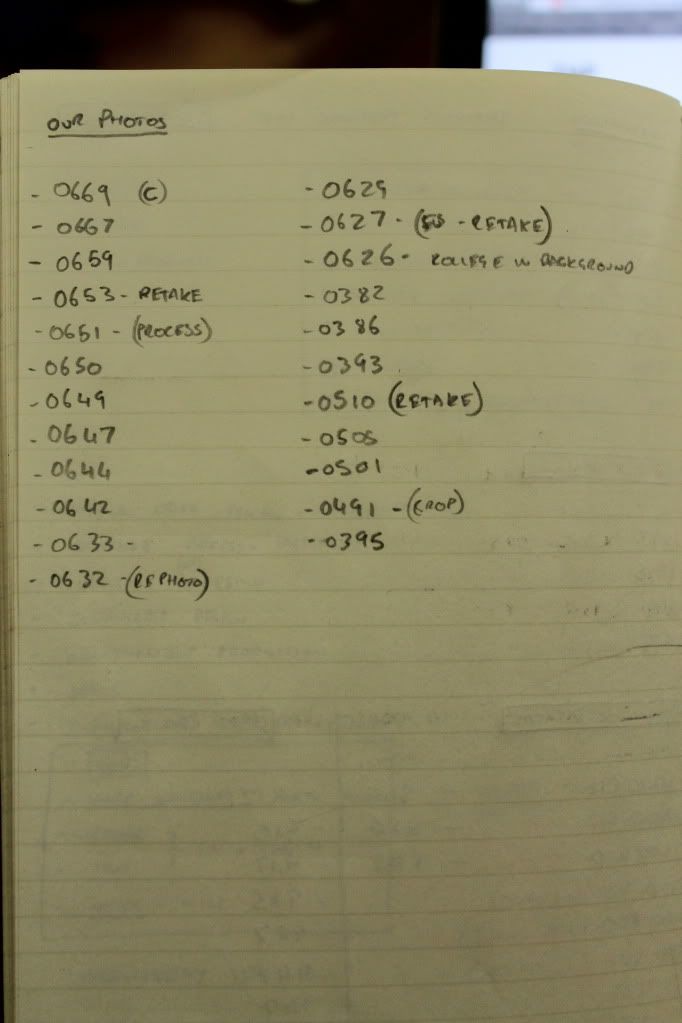 OUR PHOTOS
- 0669 (C)
- 0667
- 0659
- 0653 - RETAKE
- 0651 - (PROCESS)
- 0650
- 0649
- 0647
- 0644
- 0642
- 0633 -
- 0632 - (REPHOTO)
- 0629
- 0627 - ( - RETAKE)
- 0626 - KOLLEGE IN BACKGROUND
- 0382
- 0386
- 0393
- 0510 (RETAKE)
- 0505
- 0501
- 0491 - (CROP)
- 0395